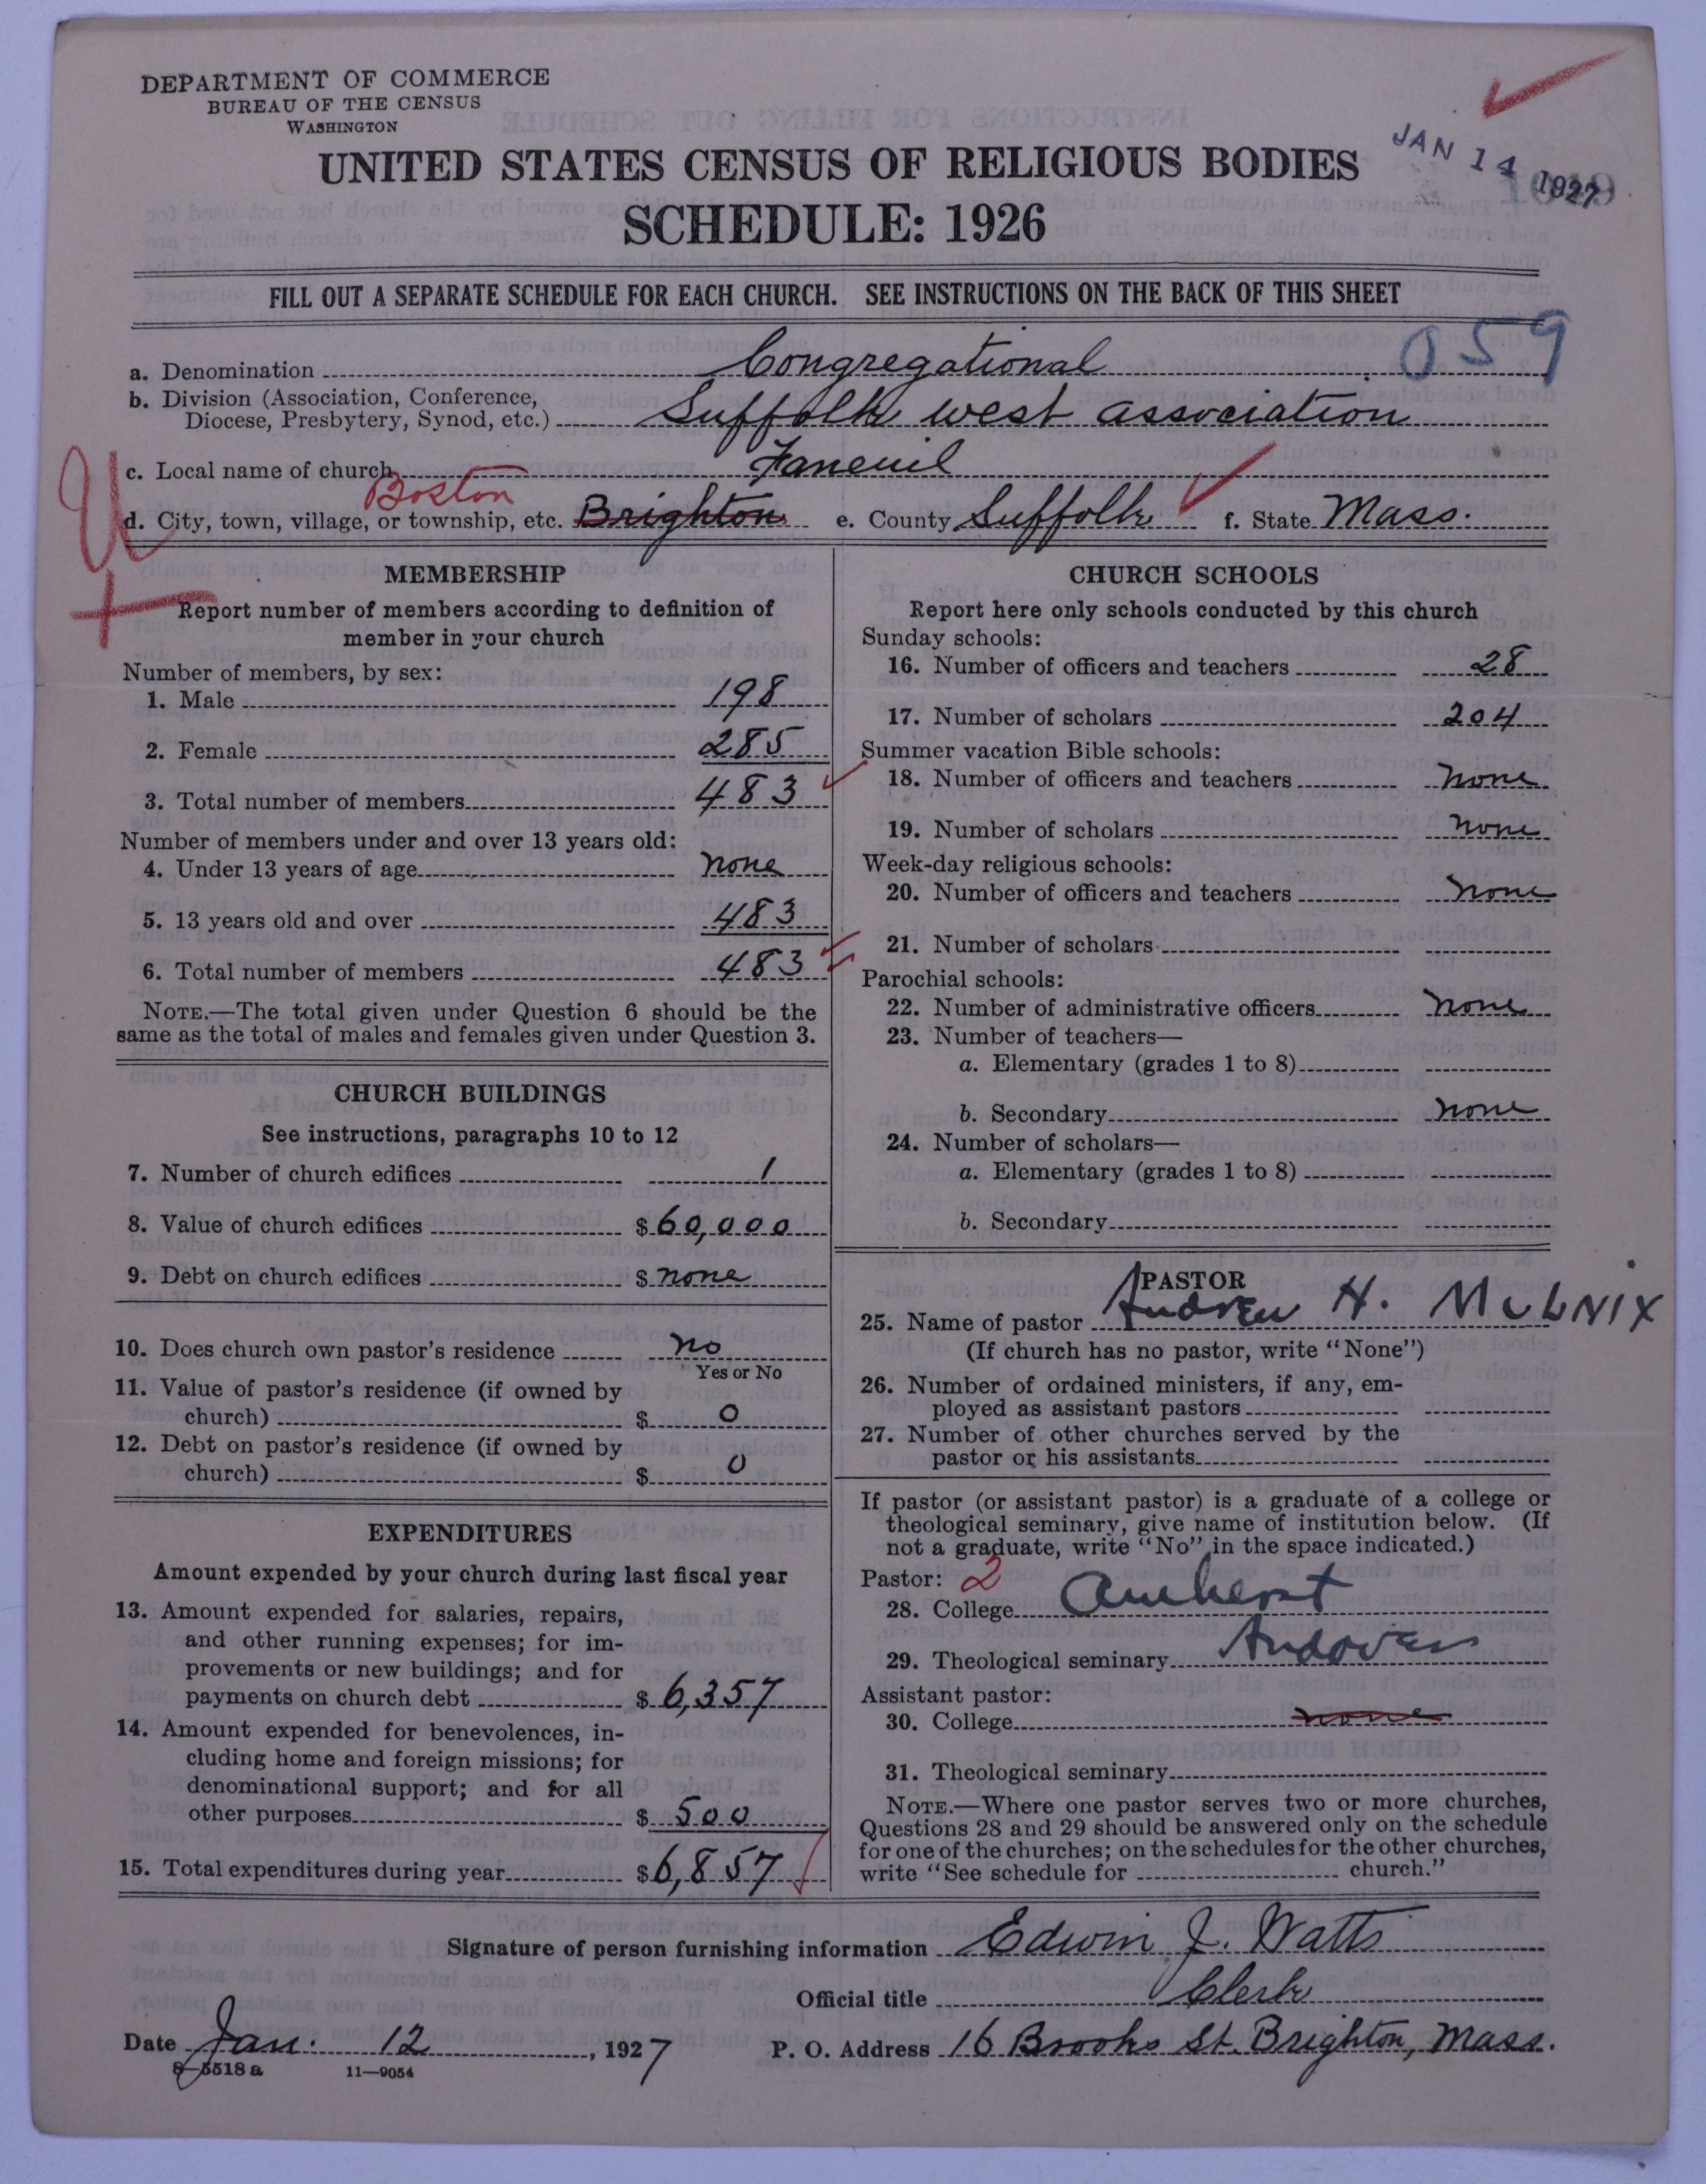 DEPARTMENT OF COMMERCE
BUREAU OF THE CENSUS
WASHINGTON
UNITED STATES CENSUS OF RELIGIOUS BODIES
JAN 14 1927
SCHEDULE: 1926
FILL OUT A SEPARATE SCHEDULE FOR EACH CHURCH. SEE INSTRUCTIONS ON THE BACK OF THIS SHEET
059
a. Denomination Congregational
b. Division (Association, Conference,
Diocese, Presbytery, Synod, etc.) Suffolk west association
c. Local name of church Faneuil
Boston
d. City, town, village, or township, etc. Brighton e. County Suffolk f. State Mass.
U
MEMBERSHIP
Report number of members according to definition of
member in your church
Number of members, by sex:
1. Male 198
2. Female 285
3. Total number of members 483
Number of members under and over 13 years old:
4. Under 13 years of age none
5. 13 years old and over 483
6. Total number of members 483
NOTE.—The total given under Question 6 should be the
same as the total of males and females given under Question 3.
CHURCH BUILDINGS
See instructions, paragraphs 10 to 12
7. Number of church edifices 1
8. Value of church edifices $60,000
9. Debt on church edifices $ none
10. Does church own pastor's residence no
Yes or No
11. Value of pastor's residence (if owned by
church) $ 0
12. Debt on pastor's residence (if owned by
church) $ 0
EXPENDITURES
Amount expended by your church during last fiscal year
13. Amount expended for salaries, repairs,
and other running expenses; for im-
provements or new buildings; and for
payments on church debt $ 6,357
14. Amount expended for benevolences, in-
cluding home and foreign missions; for
denominational support; and for all
other purposes $ 500
15. Total expenditures during year $6,857
CHURCH SCHOOLS
Report here only schools conducted by this church
Sunday schools:
16. Number of officers and teachers 28
17. Number of scholars 204
Summer vacation Bible schools:
18. Number of officers and teachers none
19. Number of scholars none
Week-day religious schools:
20. Number of officers and teachers none
21. Number of scholars
Parochial schools:
22. Number of administrative officers none
23. Number of teachers—
a. Elementary (grades 1 to 8)
b. Secondary none
24. Number of scholars—
a. Elementary (grades 1 to 8)
b. Secondary
PASTOR
25. Name of pastor Andrew H.
(If church has no pastor, write "None")
26. Number of ordained ministers, if any, em-
ployed as assistant pastors
27. Number of other churches served by the
pastor or his assistants
If pastor (or assistant pastor) is a graduate of a college or
theological seminary, give name of institution below. (If
not a graduate, write "No" in the space indicated.)
Pastor: 2
28. College Amherst
29. Theological seminary Andover
Assistant pastor:
30. College none
31. Theological seminary
NOTE.—Where one pastor serves two or more churches,
Questions 28 and 29 should be answered only on the schedule
for one of the churches; on the schedules for the other churches,
write "See schedule for church."
Signature of person furnishing information Edwin J. Watts
Official title Clerk
Date Jan. 12, 1927 P. O. Address 16 Brooks St. Brighton, Mass.
8-5518 a 11—9054